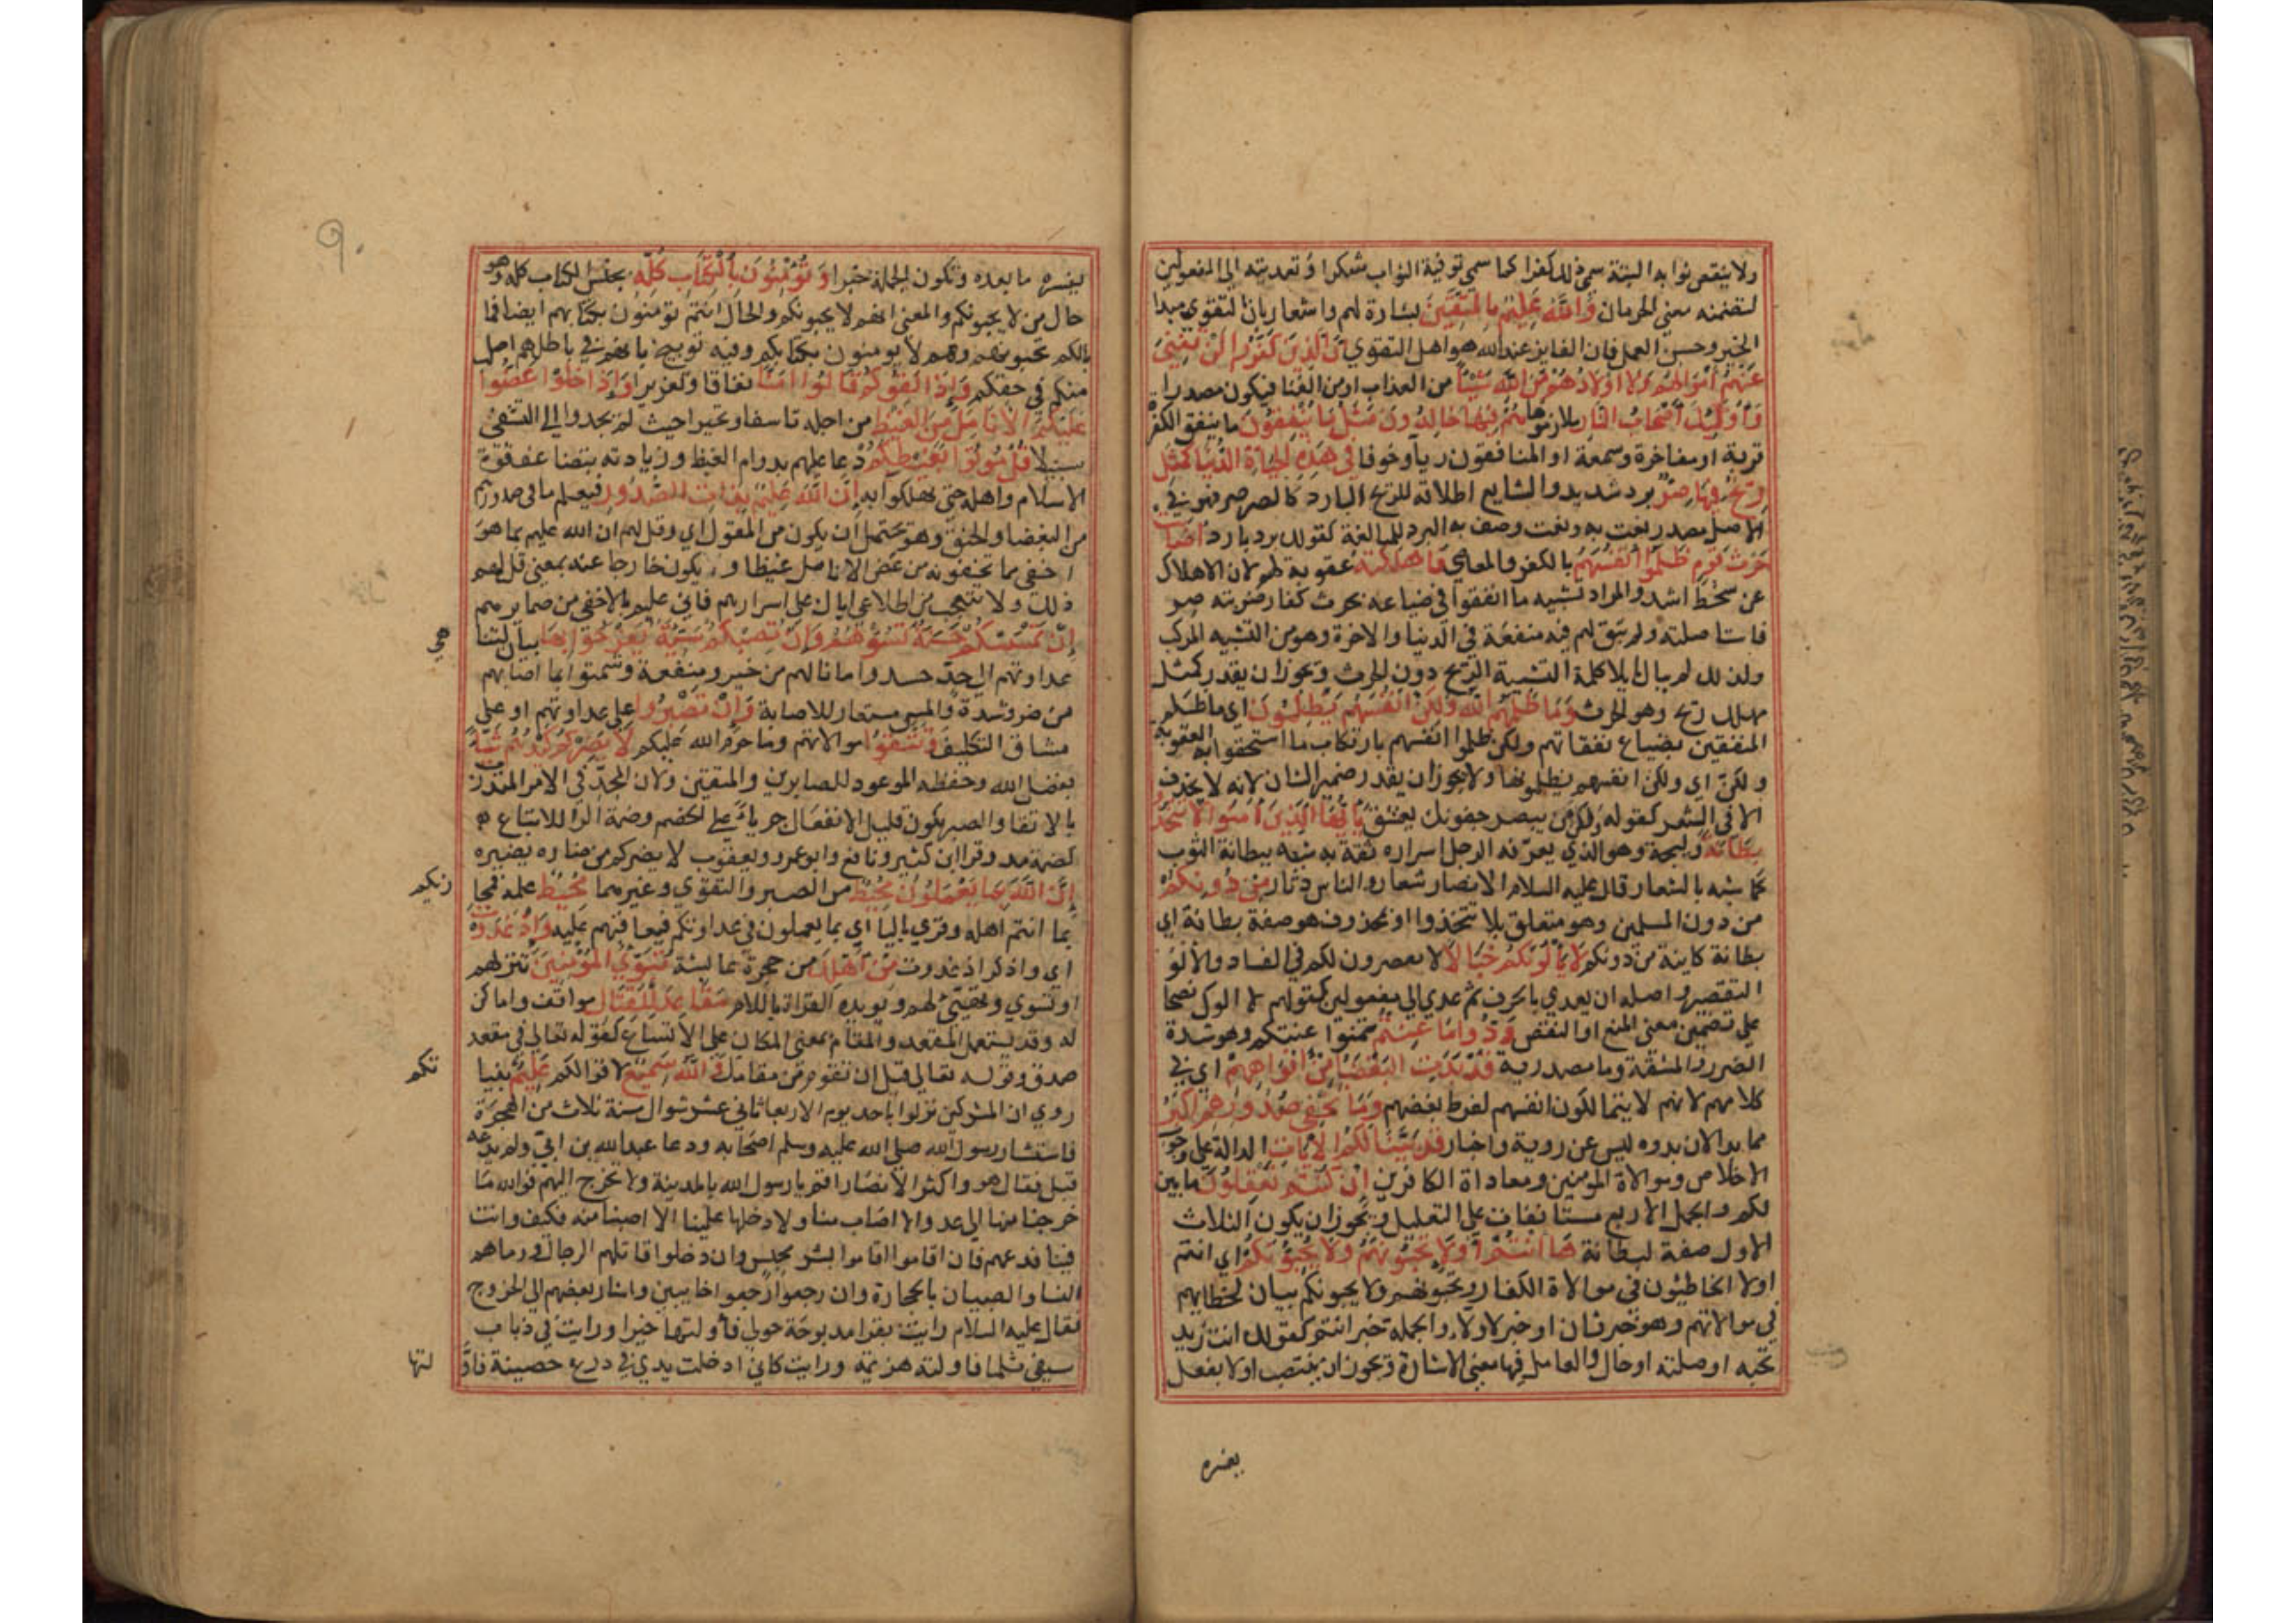 ولا ينقص ثوابه البتة سمي ذلك كفرا كما سمي توفية الثواب شكرا وتعديته الى المفعولين
لتضمنه معنى الحرمان وَاللَّهُ عَلِيمٌ بِالْمُتَّقِينَ بشارة لهم واشعار بان التقوى مبدا
الخير وحسن العمل فان الفايز عند الله هو اهل التقوي اِنَّ الَّذِينَ كَفَرُوا لَنْ تُغْنِيَ
عَنْهُمْ أَمْوَالُهُمْ وَلَا اَوْلَادُهُمْ مِنَ اللَّهِ شَيْئًا من العذاب او من الغنا فيكون مصدرا
وَأُولَٰئِكَ أَصْحَابُ النَّارِ ملازموها هُمْ فِيهَا خَالِدُونَ مَثَلُ مَا يُنْفِقُونَ ما ينفق الكفرة
قربة او مفاخرة وسمعة او المنافقون ريآ وخوفا فِي هَٰذِهِ الْحَيَاةِ الدُّنْيَا كَمَثَلِ
رِيحٍ فِيهَا صِرٌّ برد شديد والشايع اطلاقه للريح البارد كالصرصر فهو في
الاصل مصدر نعت به ونعت وصف به البرد للمبالغة كقولك برد بارد اَصَابَتْ
حَرْثَ قَوْمٍ ظَلَمُوا أَنْفُسَهُمْ بالكفر والمعاصي فَاَهْلَكَتْهُ عقوبة لهم لان الاهلاك
عن سخط اشد والمراد تشبيه ما انفقوا في ضياعه بحرث كفار ضربته صر
فاستاصلته ولم يبق لهم فيه منفعة في الدنيا والاخرة وهو من التشبيه المركب
ولذلك لم يبال بايلا كلمة التشبيه الريح دون الحرث ويجوز ان يقدر كمثل
مهلك ريح وهو الحرث وَمَا ظَلَمَهُمُ اللَّهُ وَلَكِنْ اَنْفُسَهُمْ يَظْلِمُونَ اي ما ظلم
المنفقين بضياع نفقاتهم ولكن ظلموا انفسهم بارتكاب ما استحقوا به العقوبة
ولكنّ اي ولكن انفسهم يظلمونها ولا يجوز ان يقدر ضمير الشان لانه لا يحذف
الا في الشعر كقوله ولكن من يبصر جفونك يعشق يَا أَيُّهَا الَّذِينَ آمَنُوا لَا تَتَّخِذُوا
بِطَانَةً وليجة وهو الذي يعرّفه الرجل اسراره ثقة به شبه ببطانة الثوب
كما شبه بالشعار قال عليه السلام الانصار شعار والناس دثار مِنْ دُونِكُمْ
من دون المسلمين وهو متعلق بلا تتخذوا او بمحذوف هو صفة بطانة اي
بطانة كاينة من دونكم لَا يَأْلُونَكُمْ خَبَالًا لا يقصرون لكم في الفساد والالو
التقصير واصله ان يعدي بالحرف ثم عدي الي مفعولين كقولهم لا الوك نصحا
علي تضمين معنى المنع او النقص وَدُّوا مَا عَنِتُّمْ تمنوا عنتكم وهو شدة
الضرر والمشقة وما مصدرية قَدْ بَدَتِ الْبَغْضَاءُ مِنْ اَفْوَاهِهِمْ اي في
كلامهم لانهم لا يتمالكون انفسهم لفرط بغضهم وَمَا تُخْفِي صُدُورُهُمْ اَكْبَرُ
مما بدا لان بدوه ليس عن روية واختيار قَدْ بَيَّنَّا لَكُمُ الْآيَاتِ الدالة على وجوب
الاخلاص وموالاة المومنين ومعاداة الكافرين اِنْ كُنْتُمْ تَعْقِلُونَ ما بين
لكم والجمل الاربع مستانفات علي التعليل ويجوز ان يكون الثلاث
الاول صفة لبطانة هَا اَنْتُمْ أُولَاءِ تُحِبُّونَهُمْ وَلَا يُحِبُّونَكُمْ اي انتم
اولا الخاطئون في موالاة الكفار وتحبونهم ولا يحبونكم بيان لخطائهم
في موالاتهم وهو خبر ثان او خبر لاولاء والجملة خبر انتم كقولك انت زيد
تحبه او صلته او حال والعامل فيها معنى الاشارة ويجوز ان ينتصب اولا بفعل
يفسره
٩٠
يفسره ما بعده وتكون الجملة خبرا وَتُؤْمِنُونَ بِالْكِتَابِ كُلِّهِ بجنس الكتاب كله وهو
حال من لا يحبونكم والمعنى انهم لا يحبونكم والحال انتم تؤمنون بكتابهم ايضا فما
بالكم تحبونهم وهم لا يومنون بكتابكم وفيه توبيخ بانهم في باطلهم اصلب
منكم في حقكم وَإِذَا لَقُوكُمْ قَالُوا آمَنَّا نفاقا وتغريرا وَإِذَا خَلَوْا عَضُّوا
عَلَيْكُمُ الْاَنَامِلَ مِنَ الْغَيْظِ من اجله تاسفا وتحيرا حيث لم يجدوا الى التشفي
سبيلا قُلْ مُوتُوا بِغَيْظِكُمْ دعا عليهم بدوام الغيظ وزيادته بتضاعف قوة
الاسلام واهله حتى يهلكوا به إِنَّ اللَّهَ عَلِيمٌ بِذَاتِ الصُّدُورِ فيعلم ما في صدورهم
من البغضا والحنق وهو يحتمل ان يكون من المقول اي وقل لهم ان الله عليم بما هو
اخفى مما تخفونه من عض الانامل غيظا وان يكون خارجا عنه بمعنى قل لهم
ذلك ولا تتعجب من اطلاعي اياك على اسرارهم فاني عليم بالاخفى من ضمايرهم
إِنْ تَمْسَسْكُمْ حَسَنَةٌ تَسُؤْهُمْ وَإِنْ تُصِبْكُمْ سَيِّئَةٌ يَفْرَحُوا بِهَا بيان لتنا
هي
عداوتهم الى حد حسدوا ما نالهم من خير ومنفعة وشمتوا بما اصابهم
من ضر وشدة والمس مستعار للاصابة وَإِنْ تَصْبِرُوا علي عداوتهم او علي
مشاق التكليف وَتَتَّقُوا موالاتهم وما حرم الله عليكم لَا يَضُرُّكُمْ كَيْدُهُمْ شَيْئًا
بفضل الله وحفظه الموعود للصابرين والمتقين ولان المجدّ في الامر المتدرب
بالاتقا والصبر يكون قليل الانفعال جريا علي الخصم وضمة الرا للاتباع
كضمة مد وقرا ابن كثير ونافع وابو عمرو ويعقوب لا يضركم من ضاره يضيره
إِنَّ اللَّهَ بِمَا يَعْمَلُونَ مُحِيطٌ من الصبر والتقوي وغيرهما مُحِيطٌ علمه فيجا
زيكم
بما انتم اهله وقري باليا اي بما يعملون في عداوتكم فيعاقبهم عليه وَإِذْ غَدَوْتَ
اي واذكر اذ غدوت مِنْ اَهْلِكَ من حجرة عايشة تُبَوِّئُ الْمُؤْمِنِينَ تنزلهم
او تسوي وتهيئ لهم ويويده القراة باللام مَقَاعِدَ لِلْقِتَالِ مواقف واماكن
له وقد يستعمل المقعد والمقام بمعنى المكان على الاتساع كقوله تعالى في مقعد
صدق وقوله تعالى قبل ان تقوم من مقامك وَاللَّهُ سَمِيعٌ لاقوالكم عَلِيمٌ بنيا
تكم
روي ان المشركين نزلوا باحد يوم الاربعا ثاني عشر شوال سنة ثلاث من الهجرة
فاستشار رسول الله صلى الله عليه وسلم اصحابه ودعا عبد الله بن ابي ولم يدعه
قبل فقال هو واكثر الانصار اقم يا رسول الله بالمدينة ولا تخرج اليهم فوالله ما
خرجنا منها الى عدو الا اصاب منا ولا دخلها علينا الا اصبنا منه فكيف وانت
فينا فدعهم فان اقاموا اقاموا بشر مجلس وان دخلوا قاتلهم الرجال ورماهم
النسا والصبيان بالحجارة وان رجعوا رجعوا خايبين واشار بعضهم الى الخروج
فقال عليه السلام رايت بقرا مذبوحة حولي فأولتها خيرا ورايت في ذباب
سيفي ثلما فاولته هزيمة ورايت كاني ادخلت يدي في درع حصينة فاوّ
لتها